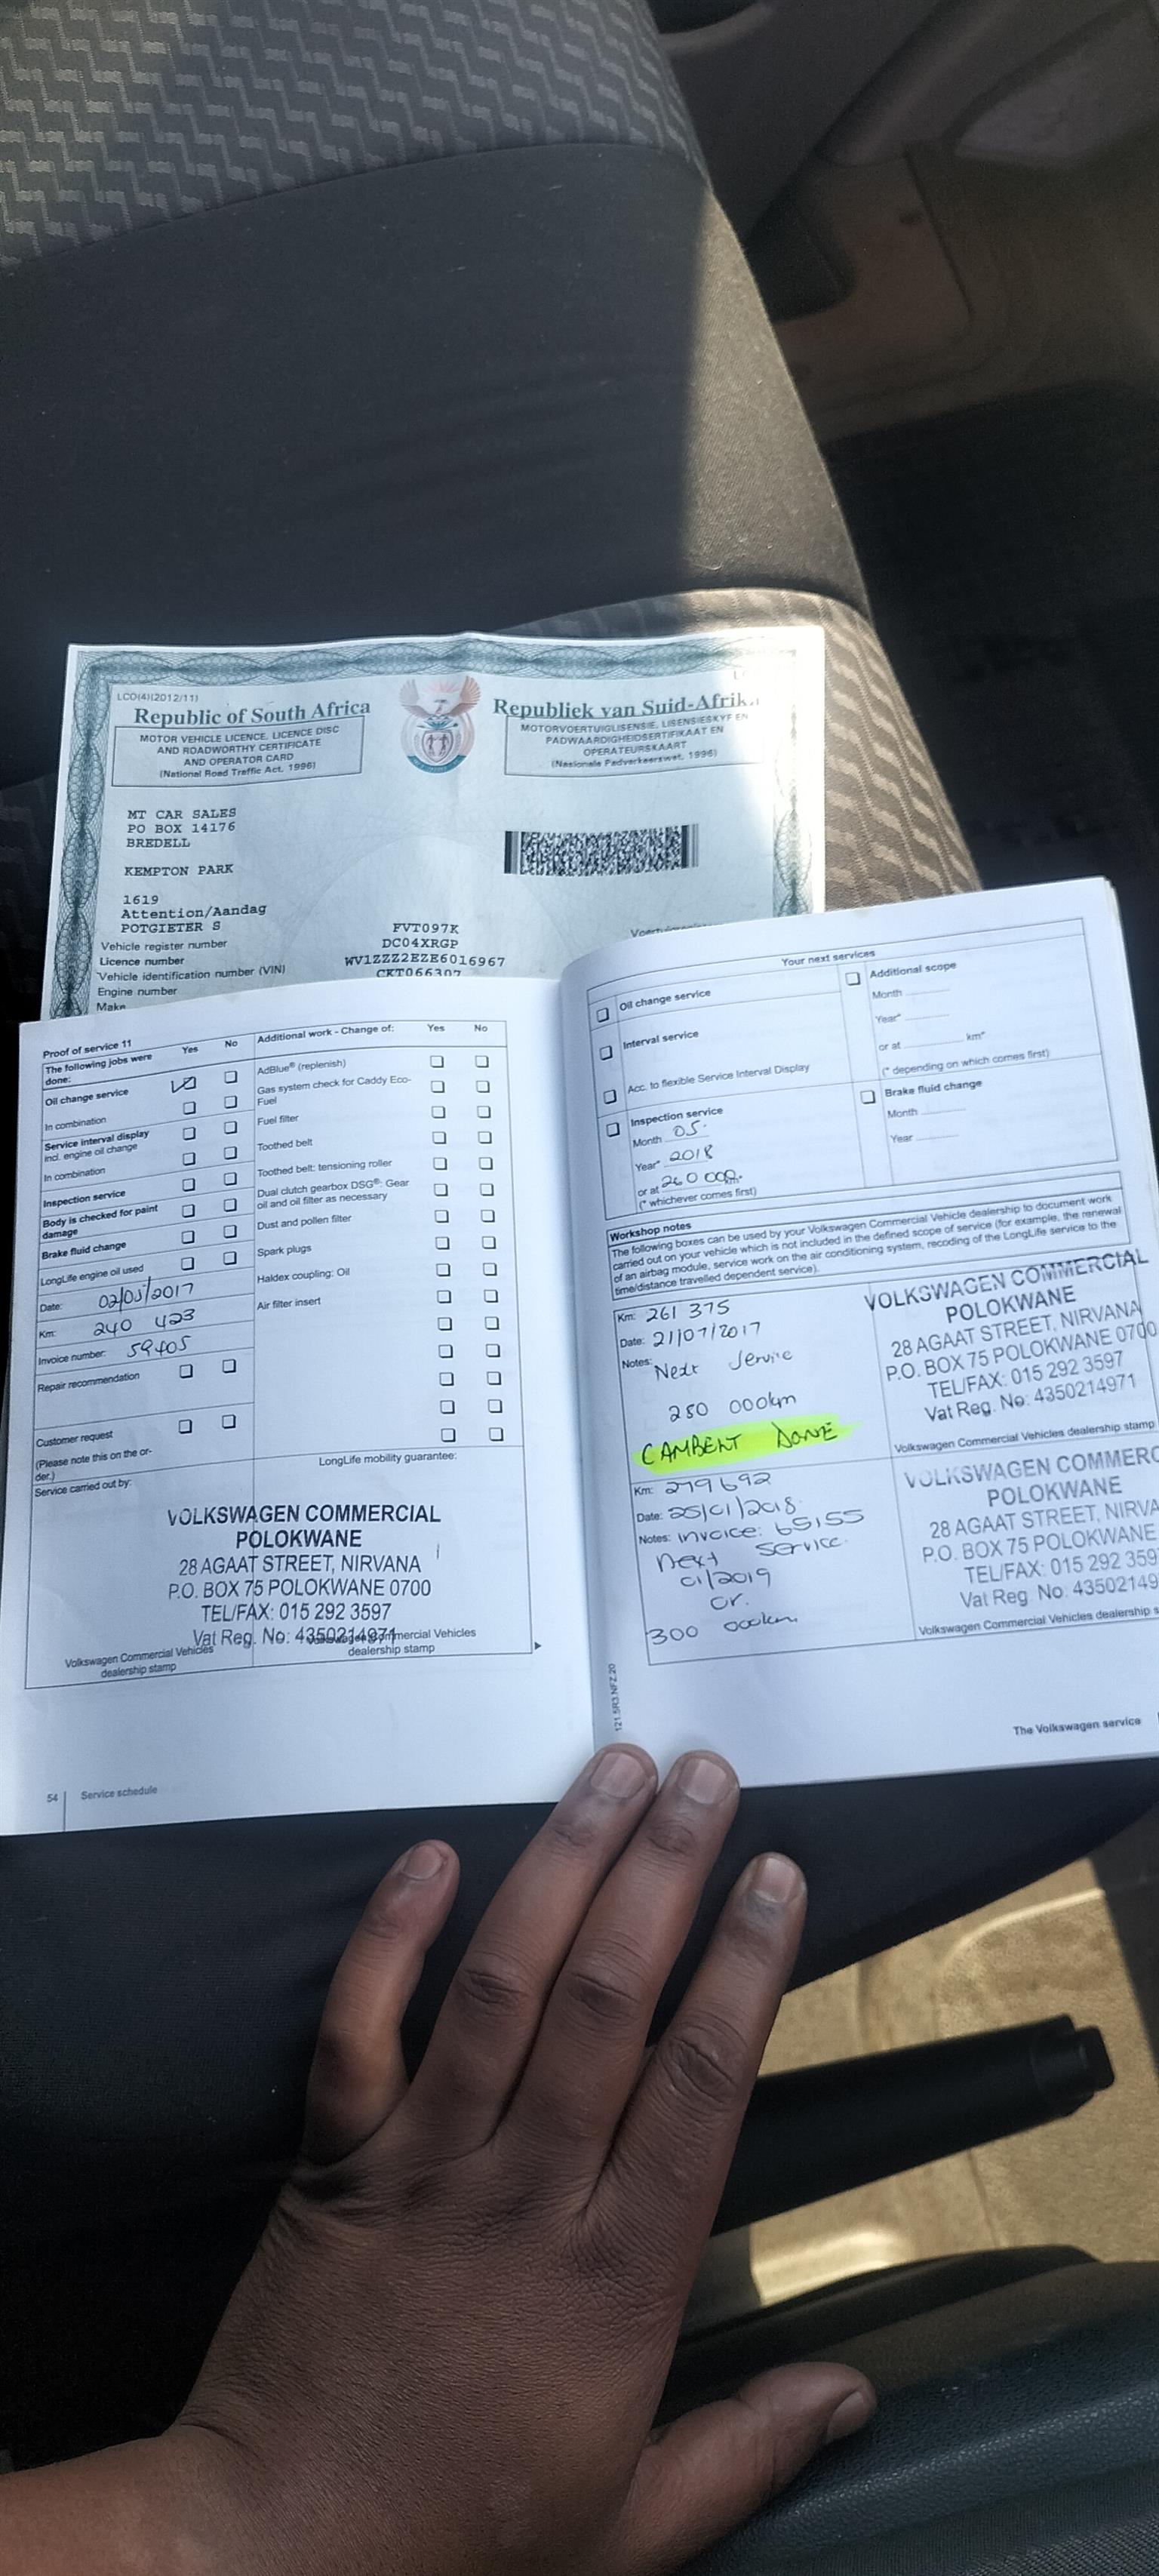 LCO(4)(2012/11)
Republic of South Africa
MOTOR VEHICLE LICENCE, LICENCE DISC
AND ROADWORTHY CERTIFICATE
AND OPERATOR CARD
(National Road Traffic Act, 1996)
Republiek van Suid-Afrik
MOTORVOERTUIGLISENSIE, LISENSIESKYF EN
PADWAARDIGHEIDSERTIFIKAAT EN
OPERATEURSKAART
(Nasionale Padverkeerswet, 1996)
MT CAR SALES
PO BOX 14176
BREDELL
KEMPTON PARK
1619
Attention/Aandag
POTGIETER S
Vehicle register number FVT097K
Licence number DC04XRGP
Vehicle identification number (VIN) WV1ZZZ2EZE6016967
Engine number CKT066307
Make
Proof of service 11
The following jobs were done: Yes No
Oil change service
In combination
Service interval display
incl. engine oil change
In combination
Inspection service
Body is checked for paint
damage
Brake fluid change
LongLife engine oil used
Date: 02/05/2017
Km: 240 423
Invoice number: 59405
Repair recommendation
Customer request
(Please note this on the or-
der.)
Service carried out by:
Additional work - Change of: Yes No
AdBlue® (replenish)
Gas system check for Caddy Eco-
Fuel
Fuel filter
Toothed belt
Toothed belt: tensioning roller
Dual clutch gearbox DSG®: Gear
oil and oil filter as necessary
Dust and pollen filter
Spark plugs
Haldex coupling: Oil
Air filter insert
LongLife mobility guarantee:
VOLKSWAGEN COMMERCIAL
POLOKWANE
28 AGAAT STREET, NIRVANA
P.O. BOX 75 POLOKWANE 0700
TEL/FAX: 015 292 3597
Vat Reg. No: 4350214971
Volkswagen Commercial Vehicles
dealership stamp
Volkswagen Commercial Vehicles
dealership stamp
54 Service schedule
Your next services
Oil change service
Interval service
Acc. to flexible Service Interval Display
Inspection service
Month 05
Year* 2018
or at 260 000 km*
(* whichever comes first)
Additional scope
Month
Year*
or at km*
(* depending on which comes first)
Brake fluid change
Month
Year
Workshop notes
The following boxes can be used by your Volkswagen Commercial Vehicle dealership to document work
carried out on your vehicle which is not included in the defined scope of service (for example, the renewal
of an airbag module, service work on the air conditioning system, recoding of the LongLife service to the
time/distance travelled dependent service).
Km: 261 375
Date: 21/07/2017
Notes: Next Service
280 000km
CAMBELT DONE
VOLKSWAGEN COMMERCIAL
POLOKWANE
28 AGAAT STREET, NIRVANA
P.O. BOX 75 POLOKWANE 0700
TEL/FAX: 015 292 3597
Vat Reg. No: 4350214971
Volkswagen Commercial Vehicles dealership stamp
Km: 279692
Date: 25/01/2018
Notes: invoice: 65155
next service
01/2019
or
300 000km
VOLKSWAGEN COMMERC
POLOKWANE
28 AGAAT STREET, NIRVA
P.O. BOX 75 POLOKWANE
TEL/FAX: 015 292 359
Vat Reg. No: 43502149
Volkswagen Commercial Vehicles dealership s
121.5R3.NFZ.20
The Volkswagen service